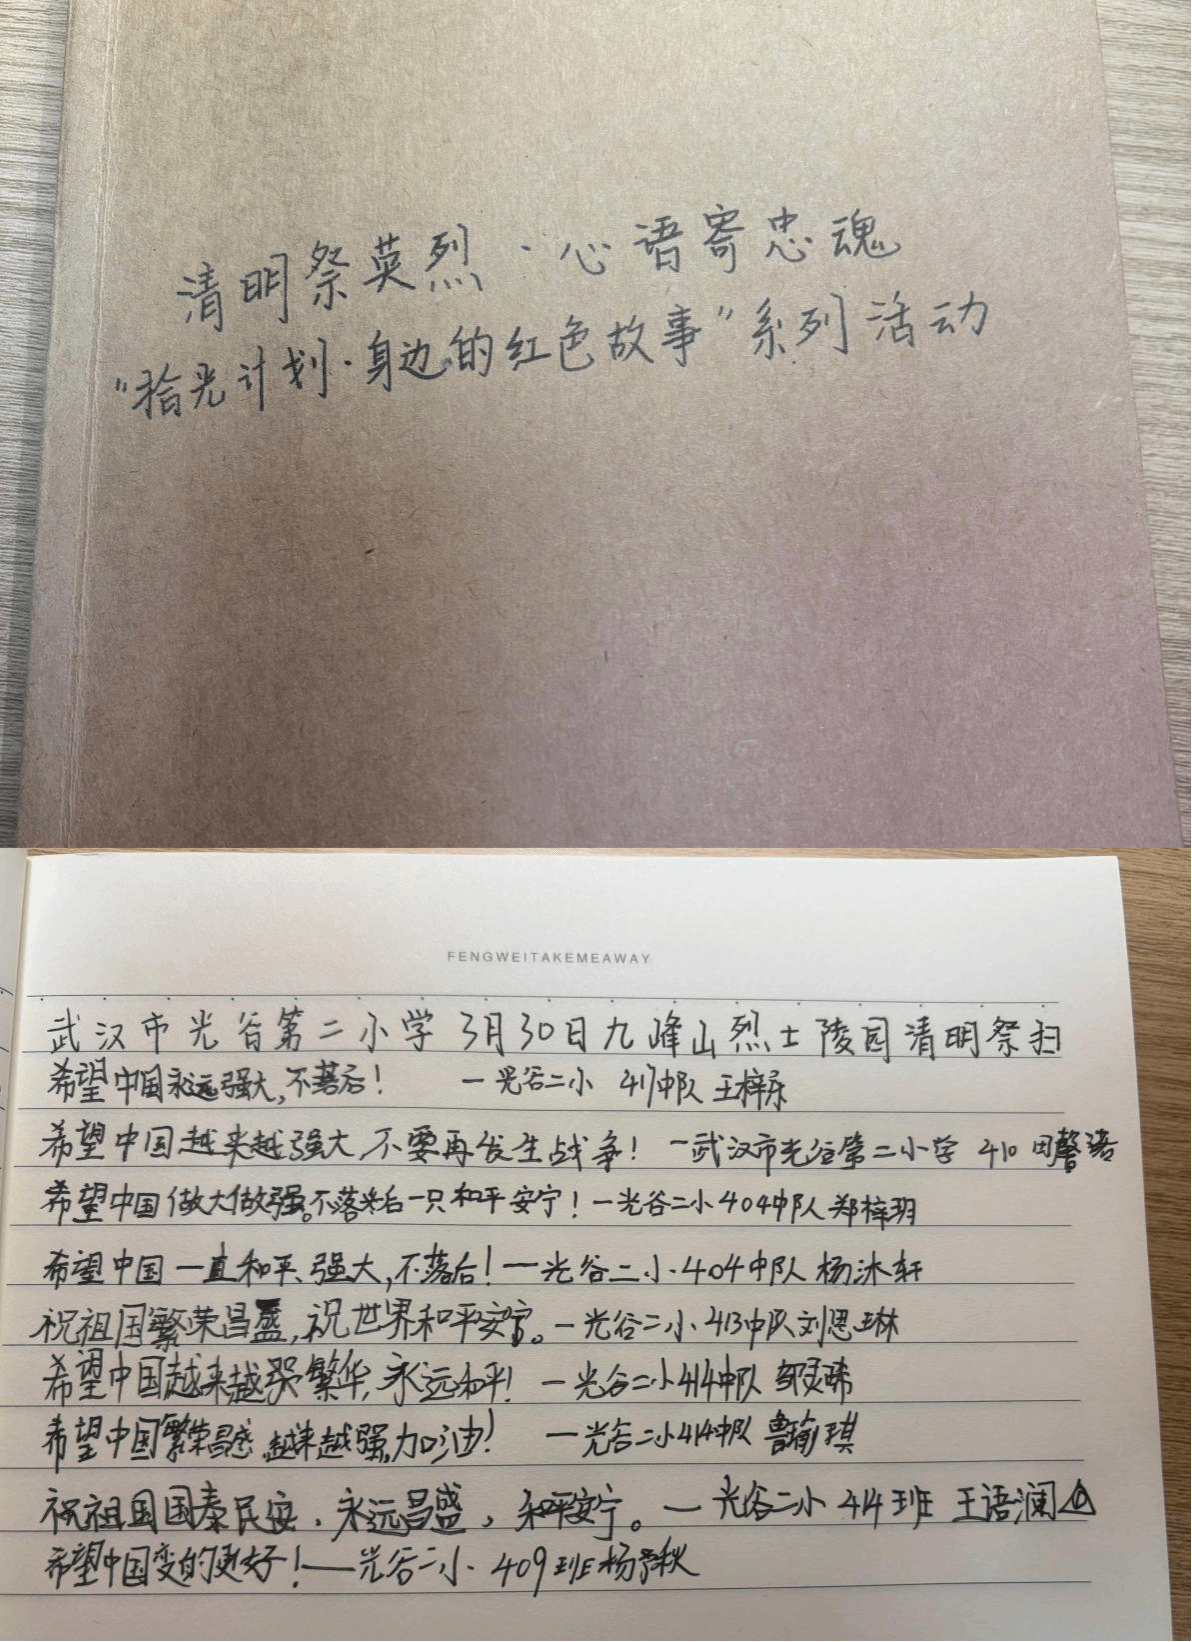 清明祭英烈·心语寄忠魂
“拾光计划·身边的红色故事”系列活动
FENGWEITAKEMEAWAY
武汉市光谷第二小学3月30日九峰山烈士陵园清明祭扫
希望中国永远强大,不落后! —光谷二小 417中队 王梓乐
希望中国越来越强大,不要再发生战争! —武汉市光谷第二小学 410
希望中国做大做强。不落后一只和平安宁!—光谷二小404中队郑梓玥
希望中国一直和平、强大,不落后!—光谷二小·404中队杨沐轩
祝祖国繁荣昌盛,祝世界和平安宁。—光谷二小413中队刘恩琳
希望中国越来越繁华,永远和平! —光谷二小414中队
希望中国繁荣昌盛,越来越强,加油! —光谷二小414中队 鲁瑜琪
祝祖国国泰民安,永远昌盛,和平安宁。—光谷二小 414班 王语澜
希望中国变的更好!——光谷二小·409班杨秋